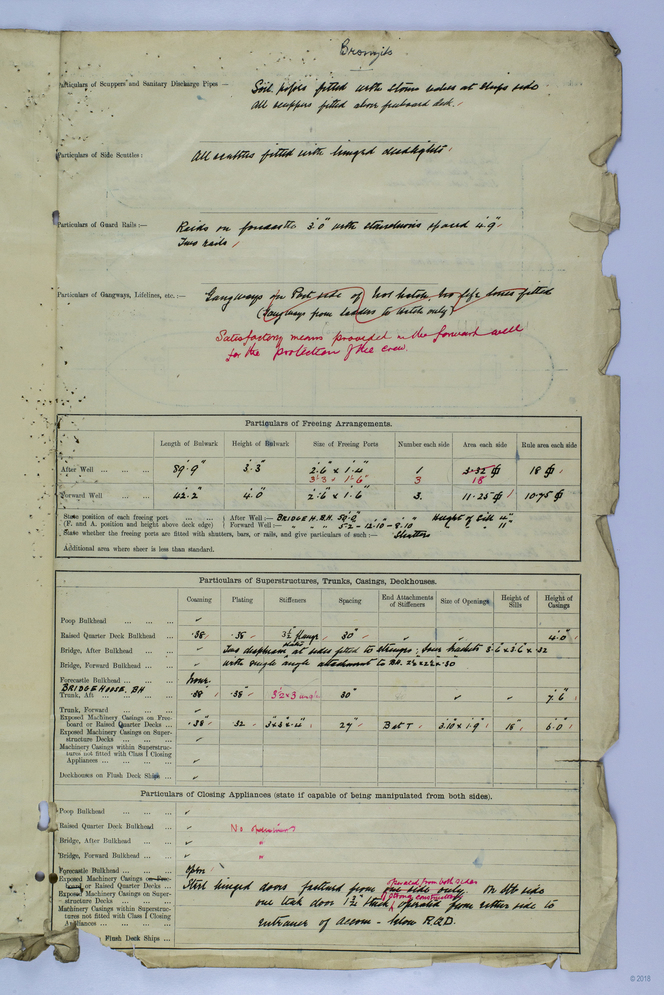 Particulars of Scuppers and Sanitary Discharge Pipes —
Soil pipes fitted with storm valves at ships side
All scuppers fitted above freeboard deck.
Particulars of Side Scuttles:
All scuttles fitted with hinged deadlights.
Particulars of Guard Rails:—
on forecastle 3'.0" with stanchions spaced 4'.9"
Two rails
Particulars of Gangways, Lifelines, etc.:—
Gangways on Port side of hatch. No life lines fitted
(Gangways from ladders to hatch only)
Satisfactory means provided in the forward well
for the protection of the crew.
Particulars of Freeing Arrangements.
Length of Bulwark Height of Bulwark Size of Freeing Ports Number each side Area each side Rule area each side
After Well 89'.9" 3'.3" 2'.6" x 1'.4" 1 3.32 18
3'.3 x 1'.6" 3 18
Forward Well 42'.2" 4'.0" 2'.6" x 1'.6" 3. 11.25 10.75
State position of each freeing port After Well:— BRIDGE H. BH. 50'.0" Height of Sill 4"
(F. and A. position and height above deck edge) Forward Well:— " " 5.2 – 12.10 – 8.10 " " 11"
State whether the freeing ports are fitted with shutters, bars, or rails, and give particulars of such:— Shutters
Additional area where sheer is less than standard.
Particulars of Superstructures, Trunks, Casings, Deckhouses.
Coaming Plating Stiffeners Spacing End Attachments of Stiffeners Size of Openings Height of Sills Height of Casings
Poop Bulkhead
Raised Quarter Deck Bulkhead .38 .38 3½" flange 30" 4'.0"
Bridge, After Bulkhead Two diaphragm plates at sides fitted to stringer: four brackets 3'.6 x 3'.6 x .32
Bridge, Forward Bulkhead with single angle attachment to BH. 2½ x 2½ x .30
Forecastle Bulkhead None
BRIDGE HOUSE, BH
Trunk, Aft .38 .38" 3½ x 3 angle 30" 7'.6"
Trunk, Forward
Exposed Machinery Casings on Free-
board or Raised Quarter Decks .38" .32 27" B at T 3'.10 x 1'.9" 18" 6'.0"
Exposed Machinery Casings on Super-
structure Decks
Machinery Casings within Superstruc-
tures not fitted with Class I Closing
Appliances
Deckhouses on Flush Deck Ships
Particulars of Closing Appliances (state if capable of being manipulated from both sides).
Poop Bulkhead
Raised Quarter Deck Bulkhead No openings
Bridge, After Bulkhead "
Bridge, Forward Bulkhead "
Forecastle Bulkhead open
Exposed Machinery Casings on Free-
board or Raised Quarter Decks Steel hinged doors fastened from one side only. On side
operated from both sides
Exposed Machinery Casings on Super-
structure Decks one teak door 1¾" thick, operated from either side to
strong construction
Machinery Casings within Superstruc-
tures not fitted with Class I Closing
Appliances entrance of accom – below R.Q.D.
Flush Deck Ships
© 2018